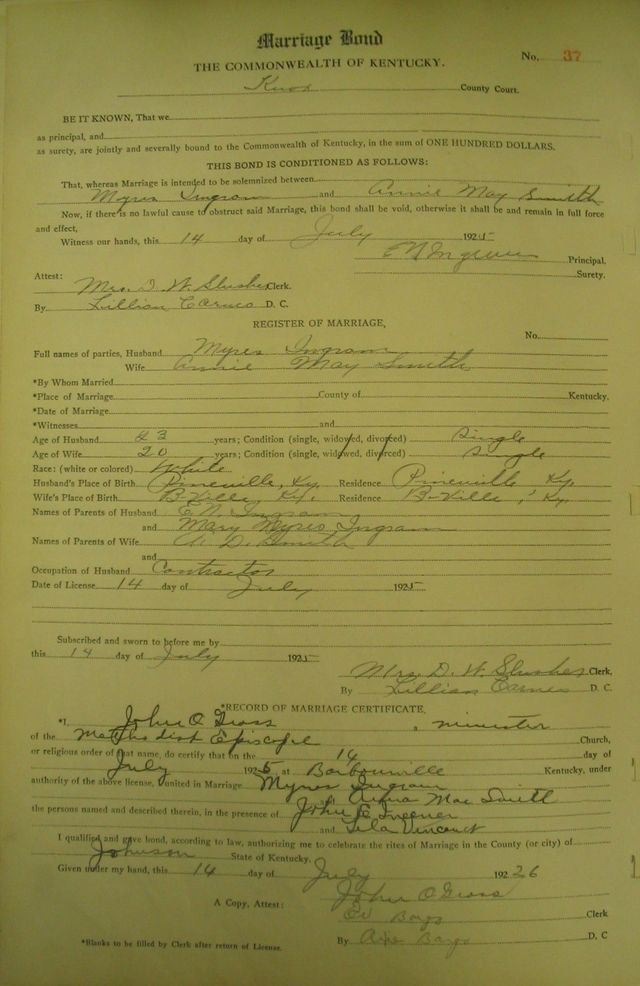 Marriage Bond
THE COMMONWEALTH OF KENTUCKY.
No. 37
Knox County Court.
BE IT KNOWN, That we
as principal, and
as surety, are jointly and severally bound to the Commonwealth of Kentucky, in the sum of ONE HUNDRED DOLLARS.
THIS BOND IS CONDITIONED AS FOLLOWS:
That, whereas Marriage is intended to be solemnized between
Myres Ingram and Annie May Smith
Now, if there is no lawful cause to obstruct said Marriage, this bond shall be void, otherwise it shall be and remain in full force
and effect,
Witness our hands, this 14 day of July 1925
E N Ingram Principal.
Surety.
Attest:
Mrs. D. W. Slusher Clerk.
By Lillian D. C.
REGISTER OF MARRIAGE,
No.
Full names of parties, Husband Myres Ingram
Wife Annie May Smith
*By Whom Married
*Place of Marriage County of Kentucky,
*Date of Marriage
*Witnesses and
Age of Husband 23 years; Condition (single, widowed, divorced) Single
Age of Wife 20 years; Condition (single, widowed, divorced) Single
Race: (white or colored) White
Husband's Place of Birth Pineville, Ky. Residence Pineville Ky.
Wife's Place of Birth B-Ville, Ky. Residence B-Ville, Ky.
Names of Parents of Husband E. N. Ingram
and Mary Myres Ingram
Names of Parents of Wife D. Smith
and
Occupation of Husband Contractor
Date of License 14 day of July 1925
Subscribed and sworn to before me by
this 14 day of July 1925
Mrs. D. W. Slusher Clerk,
By Lillian D. C.
*RECORD OF MARRIAGE CERTIFICATE,
*I, John O Gross, a minister
of the Methodist Episcople Church,
or religious order of that name, do certify that on the 14 day of
July 1925 at Barbourville Kentucky, under
authority of the above license, united in Marriage Myres Ingram
& Anna Mae Smith
the persons named and described therein, in the presence of John E
and Lela Vincent
I qualified and gave bond, according to law, authorizing me to celebrate the rites of Marriage in the County (or city) of
Johnson State of Kentucky.
Given under my hand, this 14 day of July 192 26
John O Gross
A Copy, Attest: Clerk
By D, C
*Blanks to be filled by Clerk after return of License.